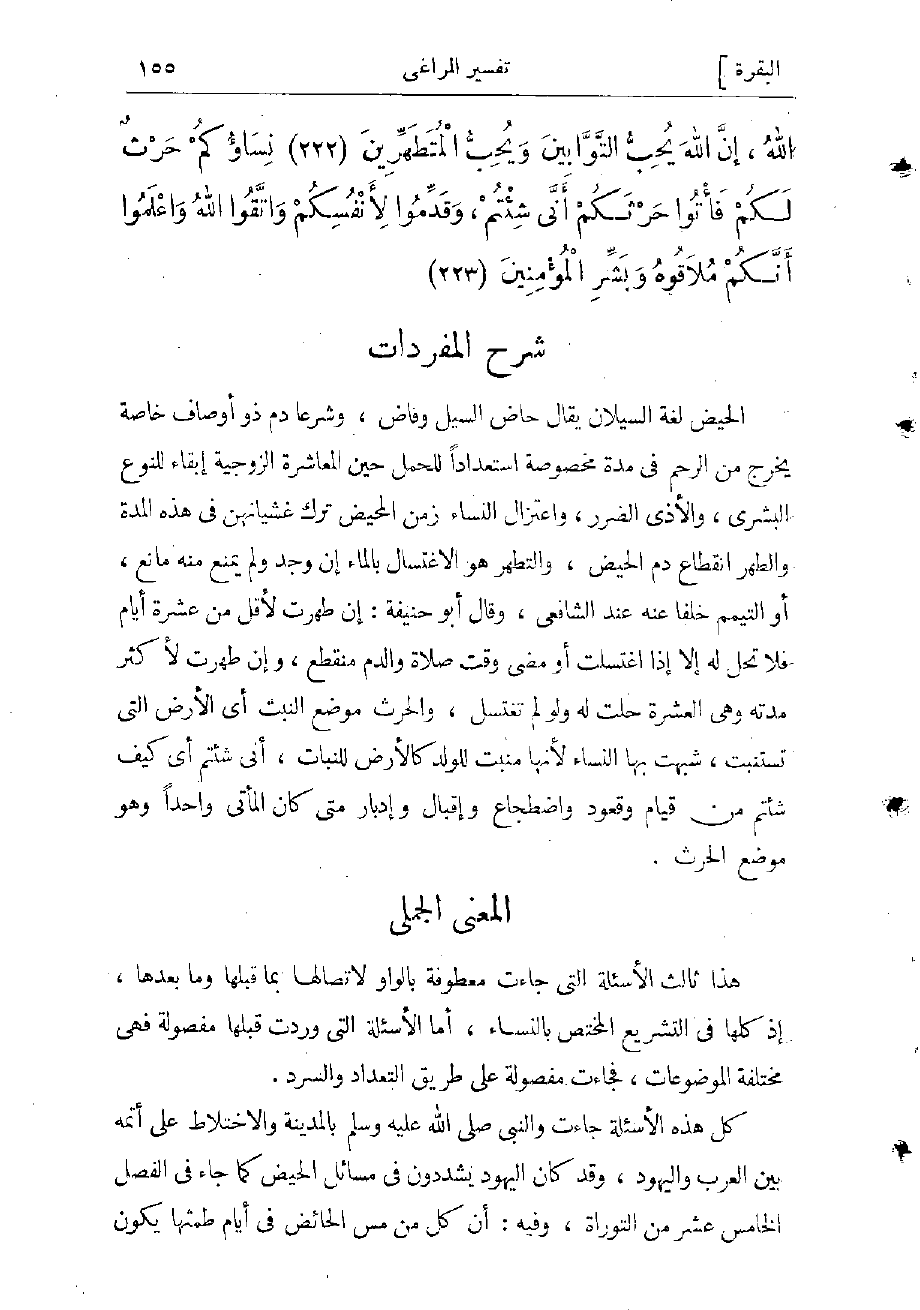 البقرة ] تفسير المراغى ١٥٥
اللهُ ، إِنَّ اللهَ يُحِبُّ التَّوَّابِينَ وَيُحِبُّ الْمُتَطَهِّرِينَ (٢٢٢) نِسَاؤُكُمْ حَرْثٌ
لَكُمْ فَأْتُوا حَرْثَكُمْ أَنَّى شِئْتُمْ ، وَقَدِّمُوا لِأَنْفُسِكُمْ وَاتَّقُوا اللهَ وَاعْلَمُوا
أَنَّكُمْ مُلَاقُوهُ وَبَشِّرِ الْمُؤْمِنِينَ (٢٢٣)
شرح المفردات
الحيض لغة السيلان يقال حاض السيل وفاض ، وشرعا دم ذو أوصاف خاصة
يخرج من الرحم فى مدة مخصوصة استعداداً للحمل حين المعاشرة الزوجية إبقاء للنوع
البشرى ، والأذى الضرر ، واعتزال النساء زمن المحيض ترك غشيانهن فى هذه المدة
والطهر انقطاع دم الحيض ، والتطهر هو الاغتسال بالماء إن وجد ولم يمنع منه مانع ،
أو التيمم خلفا عنه عند الشافعى ، وقال أبو حنيفة : إن طهرت لأقل من عشرة أيام
فلا تحل له إلا إذا اغتسلت أو مضى وقت صلاة والدم منقطع ، وإن طهرت لأكثر
مدته وهى العشرة حلت له ولو لم تغتسل ، والحرث موضع النبت أى الأرض التى
تستنبت ، شبهت بها النساء لأنها منبت للولد كالأرض للنبات ، أنى شئتم أى كيف
شئتم من قيام وقعود واضطجاع وإقبال وإدبار متى كان المأتى واحداً وهو
موضع الحرث .
المعنى الجملى
هذا ثالث الأسئلة التى جاءت معطوفة بالواو لاتصالها بما قبلها وما بعدها ،
إذ كلها فى التشريع المختص بالنساء ، أما الأسئلة التى وردت قبلها مفصولة فهى
مختلفة الموضوعات ، فجاءت مفصولة على طريق التعداد والسرد .
كل هذه الأسئلة جاءت والنبى صلى الله عليه وسلم بالمدينة والاختلاط على أتمه
بين العرب واليهود ، وقد كان اليهود يشددون فى مسائل الحيض كما جاء فى الفصل
الخامس عشر من التوراة ، وفيه : أن كل من مس الحائض فى أيام طمثها يكون